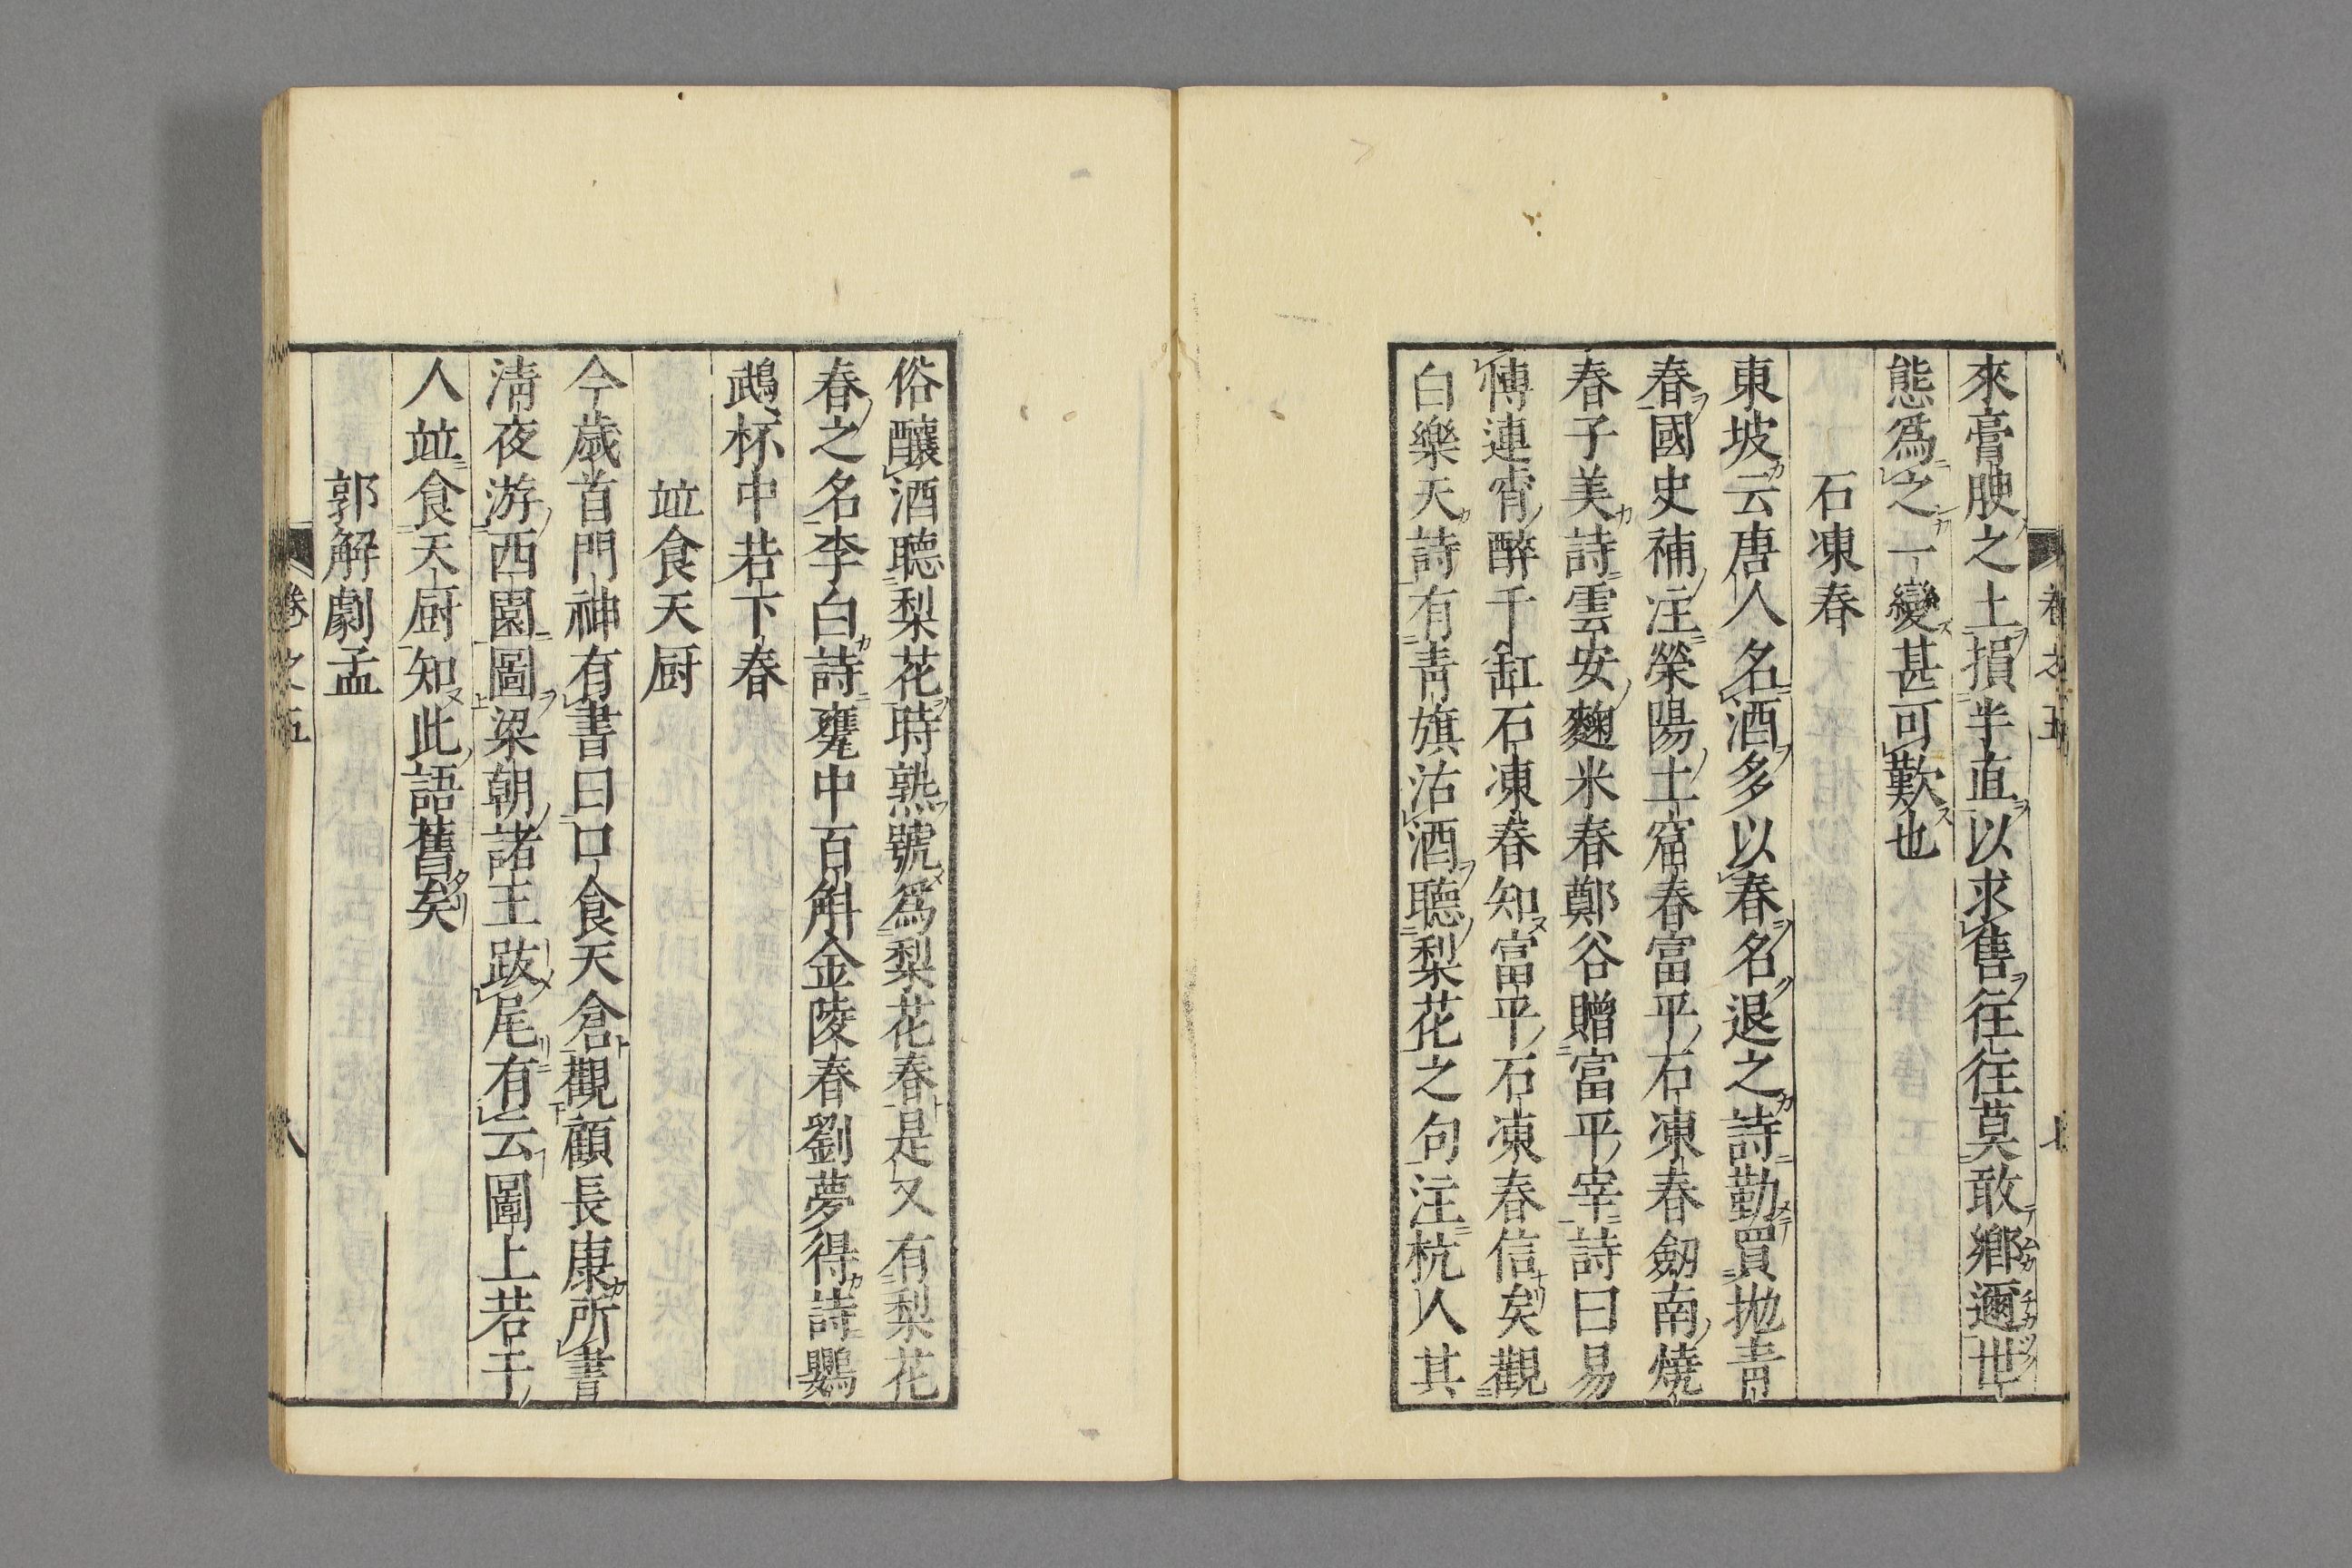 卷之五
七
來膏腴之土損半直以求售往往莫敢鄕邇世
態爲之一變甚可歎也
石凍春
東坡云唐人名酒多以春名退之詩勤買抛靑
春國史補注滎陽土窟春富平石凍春劔南燒
春子美詩雲安麴米春鄭谷贈富平宰詩曰易
博連宵醉千缸石凍春知富平石凍春信矣觀
白樂天詩有靑旗沽酒聽梨花之句注杭人其
俗釀酒聽梨花時熟號爲梨花春是又有梨花
春之名李白詩甕中百斛金陵春劉夢得詩鸚
鵡杯中若下春
竝食天厨
今歲首門神有書曰口食天倉觀顧長康所書
淸夜游西園圖梁朝諸王跋尾有云圖上若干
人竝食天厨知此語舊矣
郭解劇孟
卷之五
八